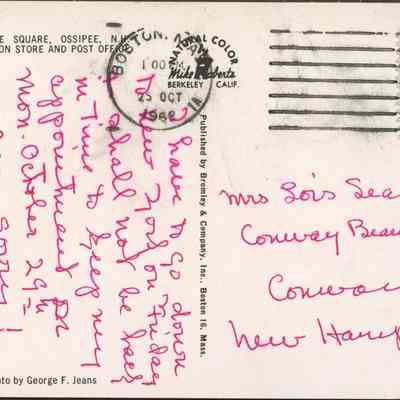 E SQUARE, OSSIPEE, N.H.
ON STORE AND POST OFFICE
BOSTON, MA
1 00 PM
25 OCT
196
NATURAL COLOR
Mike Roberts
BERKELEY CALIF.
Published by Bromley & Company, Inc., Boston 16, Mass.
I have to go down
to New York on Friday
& shall not be back
in Time to keep my
appointment for
Mon. October 29th
Sorry!
Mrs Lois Sea
Conway Beau
Conway
New Hamp
to by George F. Jeans